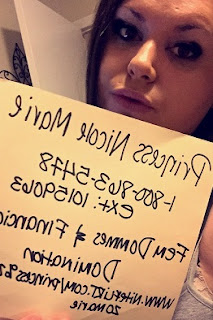 Princess Nicole Marie
1-800-863-5478
ext: 10159063
Fem Dommes & Financial
Domination
www.NiteFlirt.com/princess
zo marie